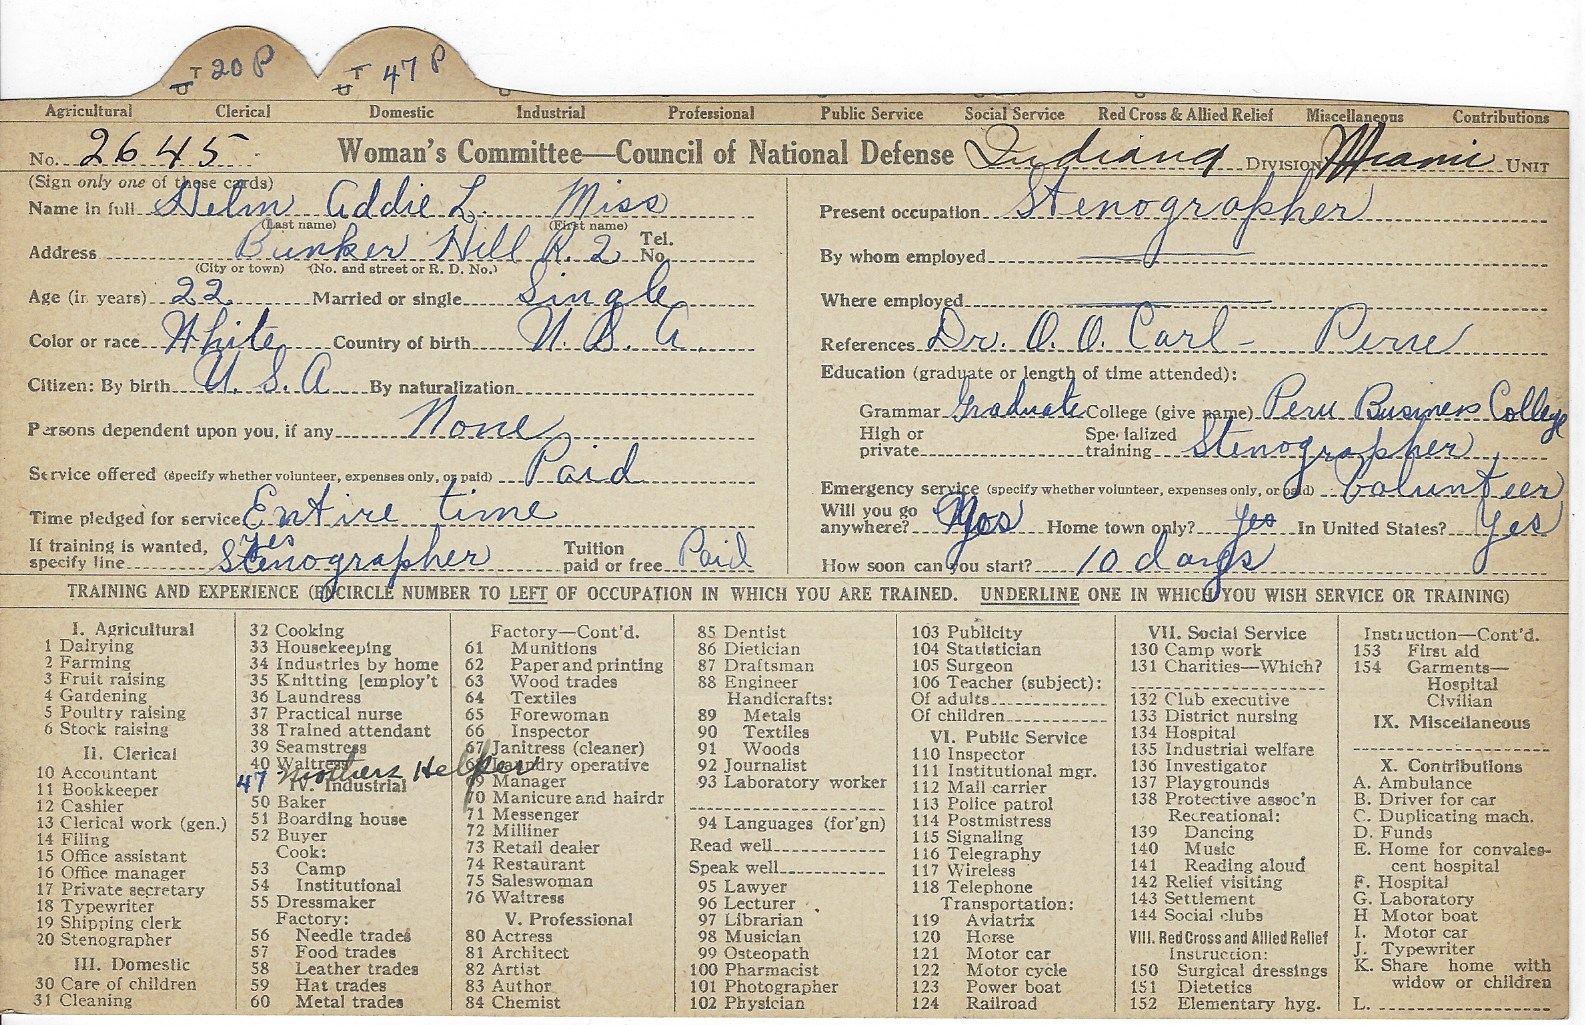 T 20 P T 47 P
Agricultural Clerical Domestic Industrial Professional Public Service Social Service Red Cross & Allied Relief Miscellaneous Contributions
No. 2645 Woman's Committee—Council of National Defense Indiana DIVISION Miami UNIT
(Sign only one of these cards)
Name in full Helm Addie L. Miss
(Last name) (First name)
Address Bunker Hill R. 2 Tel. No.
(City or town) (No. and street or R. D. No.)
Age (in years) 22 Married or single Single
Color or race White Country of birth U. S. A.
Citizen: By birth U. S. A By naturalization
Persons dependent upon you, if any None
Service offered (specify whether volunteer, expenses only, or paid) Paid
Time pledged for service Entire time
If training is wanted, specify line yes Stenographer Tuition paid or free Paid
Present occupation Stenographer
By whom employed
Where employed
References Dr. O. O. Carl - Peru
Education (graduate or length of time attended):
Grammar Graduate College (give name) Peru Business College
High or private Specialized training Stenographer
Emergency service (specify whether volunteer, expenses only, or paid) Volunteer
Will you go anywhere? Yes Home town only? yes In United States? Yes
How soon can you start? 10 days
TRAINING AND EXPERIENCE (ENCIRCLE NUMBER TO LEFT OF OCCUPATION IN WHICH YOU ARE TRAINED. UNDERLINE ONE IN WHICH YOU WISH SERVICE OR TRAINING)
I. Agricultural
1 Dairying
2 Farming
3 Fruit raising
4 Gardening
5 Poultry raising
6 Stock raising
II. Clerical
10 Accountant
11 Bookkeeper
12 Cashier
13 Clerical work (gen.)
14 Filing
15 Office assistant
16 Office manager
17 Private secretary
18 Typewriter
19 Shipping clerk
20 Stenographer
III. Domestic
30 Care of children
31 Cleaning
32 Cooking
33 Housekeeping
34 Industries by home
35 Knitting [employ't
36 Laundress
37 Practical nurse
38 Trained attendant
39 Seamstress
40 Waitress
47 Mothers Helper
IV. Industrial
50 Baker
51 Boarding house
52 Buyer
Cook:
53 Camp
54 Institutional
55 Dressmaker
Factory:
56 Needle trades
57 Food trades
58 Leather trades
59 Hat trades
60 Metal trades
Factory—Cont'd.
61 Munitions
62 Paper and printing
63 Wood trades
64 Textiles
65 Forewoman
66 Inspector
67 Janitress (cleaner)
68 Laundry operative
69 Manager
70 Manicure and hairdr
71 Messenger
72 Milliner
73 Retail dealer
74 Restaurant
75 Saleswoman
76 Waitress
V. Professional
80 Actress
81 Architect
82 Artist
83 Author
84 Chemist
85 Dentist
86 Dietician
87 Draftsman
88 Engineer
Handicrafts:
89 Metals
90 Textiles
91 Woods
92 Journalist
93 Laboratory worker
94 Languages (for'gn)
Read well
Speak well
95 Lawyer
96 Lecturer
97 Librarian
98 Musician
99 Osteopath
100 Pharmacist
101 Photographer
102 Physician
103 Publicity
104 Statistician
105 Surgeon
106 Teacher (subject):
Of adults
Of children
VI. Public Service
110 Inspector
111 Institutional mgr.
112 Mail carrier
113 Police patrol
114 Postmistress
115 Signaling
116 Telegraphy
117 Wireless
118 Telephone
Transportation:
119 Aviatrix
120 Horse
121 Motor car
122 Motor cycle
123 Power boat
124 Railroad
VII. Social Service
130 Camp work
131 Charities—Which?
132 Club executive
133 District nursing
134 Hospital
135 Industrial welfare
136 Investigator
137 Playgrounds
138 Protective assoc'n
Recreational:
139 Dancing
140 Music
141 Reading aloud
142 Relief visiting
143 Settlement
144 Social clubs
VIII. Red Cross and Allied Relief
Instruction:
150 Surgical dressings
151 Dietetics
152 Elementary hyg.
Instruction—Cont'd.
153 First aid
154 Garments—
Hospital
Civilian
IX. Miscellaneous
X. Contributions
A. Ambulance
B. Driver for car
C. Duplicating mach.
D. Funds
E. Home for convales-
cent hospital
F. Hospital
G. Laboratory
H Motor boat
I. Motor car
J. Typewriter
K. Share home with
widow or children
L.